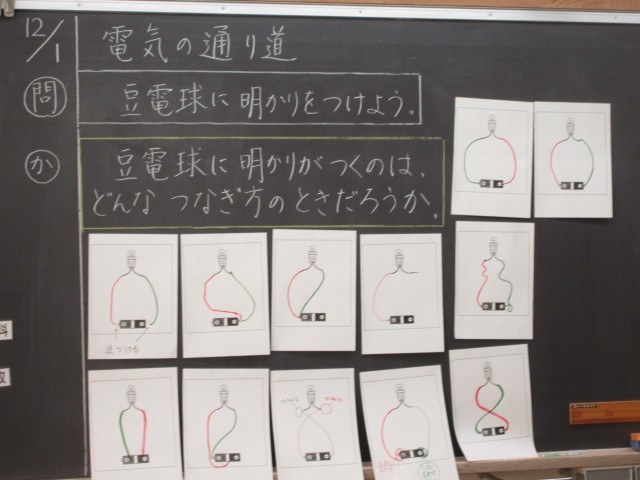 12/1
電気の通り道
問
豆電球に明かりをつけよう。
か
豆電球に明かりがつくのは、
どんなつなぎ方のときだろうか。